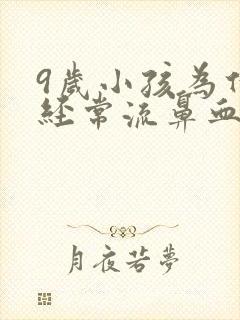 9歲小孩為
經常流鼻血
月夜若夢